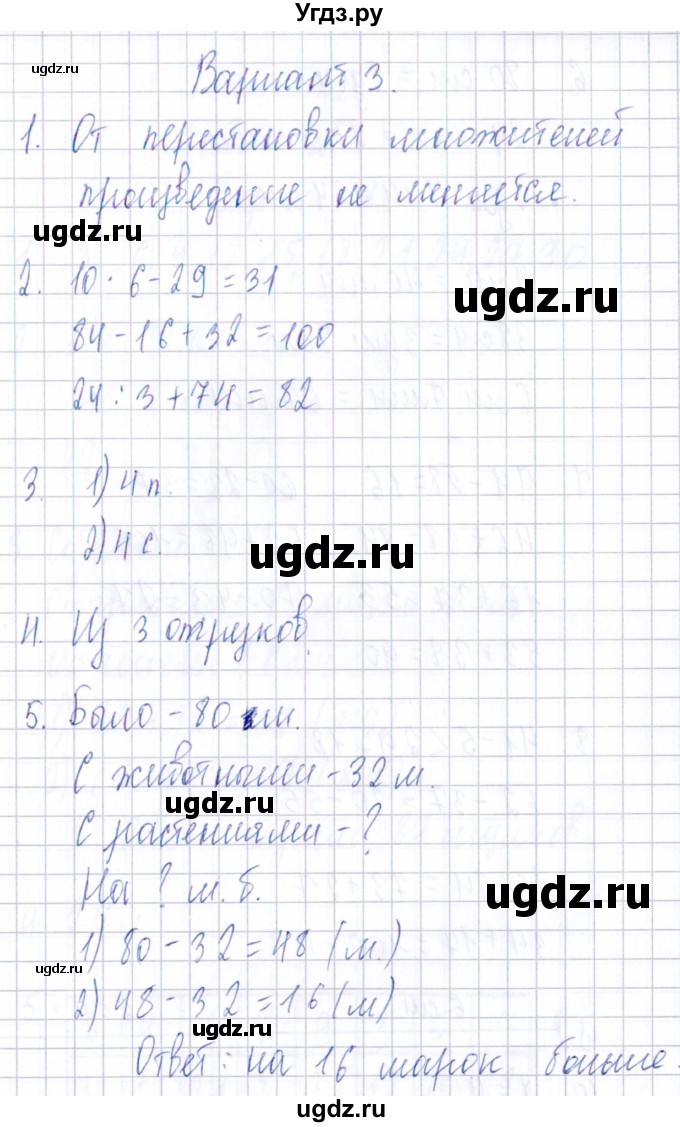 Угдз.ру
ugdz.ru
Вариант 3.
1. От перестановки множителей
произведение не меняется.
ugdz.ru
2. 10 · 6 - 29 = 31
ugdz.ru
84 - 16 + 32 = 100
24 : 3 + 74 = 82
3. 1) 4 п.
2) 4 с.
ugdz.ru
4. Из 3 отрезков.
5. Было - 80 м.
С животными - 32 м.
ugdz.ru
С растениями - ?
На ? м. б.
ugdz.ru
1) 80 - 32 = 48 (м.)
ugdz.ru
2) 48 - 32 = 16 (м)
ugdz.ru
Ответ: на 16 марок больше.
ugdz.ru
ugdz.ru